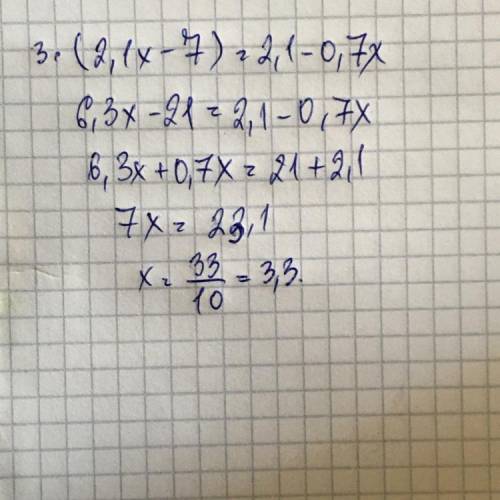 3·(2,1x-7)=2,1-0,7x
6,3x-21=2,1-0,7x
6,3x+0,7x=21+2,1
7x=23,1
x=33/10=3,3.